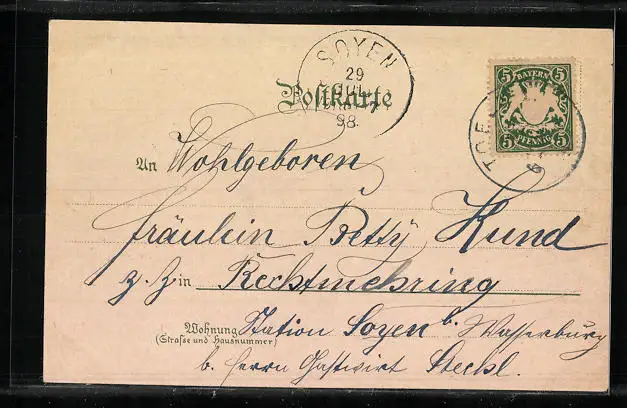 SOYEN
29
JUL
98.
Postkarte
BAYERN
5 5
5 5
PFENNIG
TOE
An Wohlgeboren
Fräulein Betty Kund
z. Z in Rechtmehring
Wohnung Station Soyen b. Wasserburg
(Strasse und Hausnummer)
b. Herrn Gastwirt Steckl.